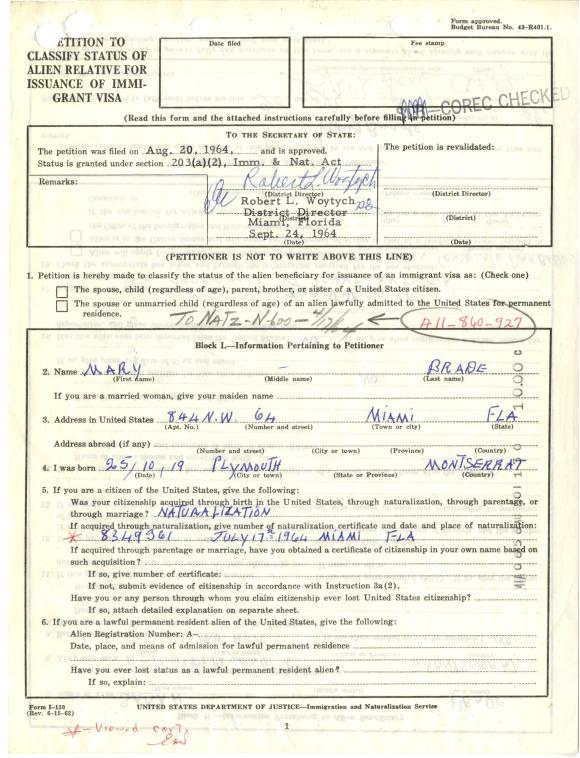 Form approved.
Budget Bureau No. 43-R401.1.
PETITION TO
CLASSIFY STATUS OF
ALIEN RELATIVE FOR
ISSUANCE OF IMMI-
GRANT VISA
Date filed
Fee stamp
COREC CHECKED
(Read this form and the attached instructions carefully before filling in petition)
TO THE SECRETARY OF STATE:
The petition was filed on Aug. 20, 1964, and is approved.
Status is granted under section 203(a)(2), Imm. & Nat. Act
The petition is revalidated:
Remarks:
Robert L. Woytych
(District Director)
Robert L. Woytych
District Director
Miami, Florida
(District)
Sept. 24, 1964
(Date)
(District Director)
(District)
(Date)
(PETITIONER IS NOT TO WRITE ABOVE THIS LINE)
1. Petition is hereby made to classify the status of the alien beneficiary for issuance of an immigrant visa as: (Check one)
The spouse, child (regardless of age), parent, brother, or sister of a United States citizen.
The spouse or unmarried child (regardless of age) of an alien lawfully admitted to the United States for permanent
residence.
TO NATZ-N-600-
A11-840-927
Block I.—Information Pertaining to Petitioner
2. Name MARY - BRADE
(First name) (Middle name) (Last name)
If you are a married woman, give your maiden name
3. Address in United States 844 N.W. 64 MIAMI FLA
(Apt. No.) (Number and street) (Town or city) (State)
Address abroad (if any)
(Number and street) (City or town) (Province) (Country)
4. I was born 25/10, 19 PLYMOUTH MONTSERRAT
(Date) (City or town) (State or Province) (Country)
5. If you are a citizen of the United States, give the following:
Was your citizenship acquired through birth in the United States, through naturalization, through parentage, or
through marriage? NATURALIZATION
If acquired through naturalization, give number of naturalization certificate and date and place of naturalization:
* 8349361 JULY 17th 1964 MIAMI FLA
If acquired through parentage or marriage, have you obtained a certificate of citizenship in your own name based on
such acquisition?
If so, give number of certificate:
If not, submit evidence of citizenship in accordance with Instruction 3a(2).
Have you or any person through whom you claim citizenship ever lost United States citizenship?
If so, attach detailed explanation on separate sheet.
6. If you are a lawful permanent resident alien of the United States, give the following:
Alien Registration Number: A-
Date, place, and means of admission for lawful permanent residence
Have you ever lost status as a lawful permanent resident alien?
If so, explain:
Form I-130
(Rev. 6-15-62)
UNITED STATES DEPARTMENT OF JUSTICE—Immigration and Naturalization Service
1
*-Viewed cert.